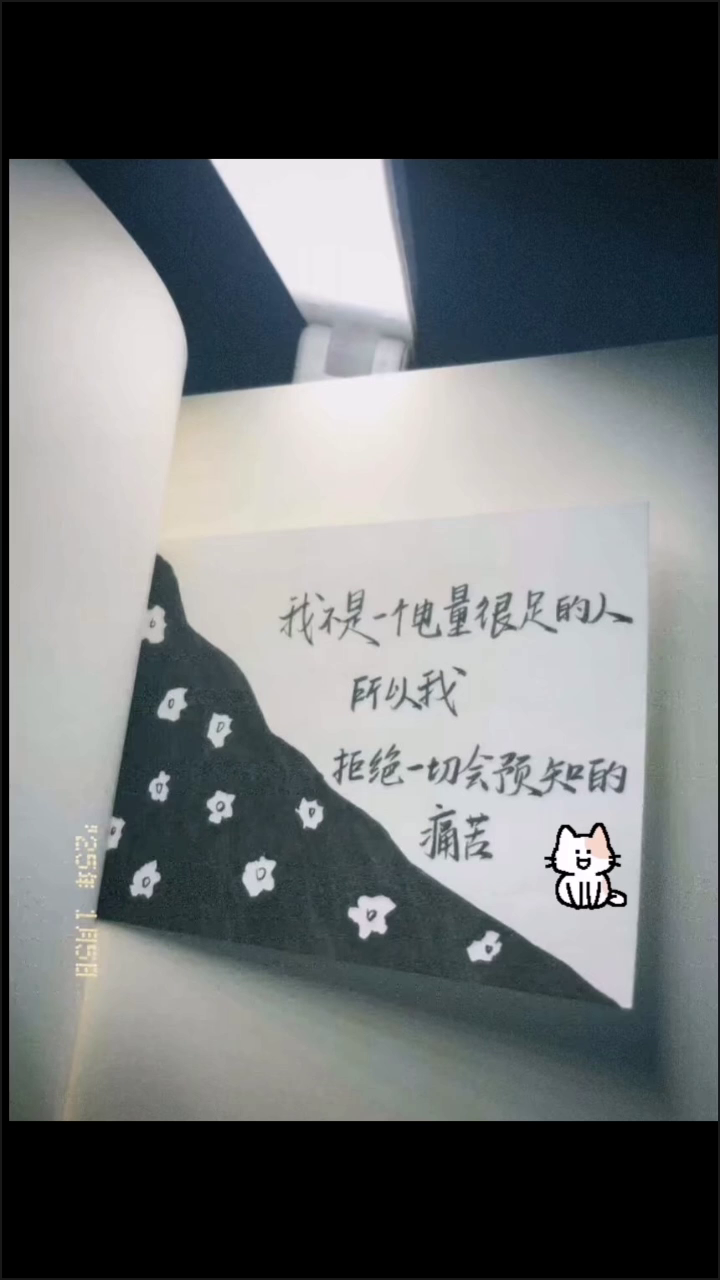 我不是一个电量很足的人
所以我
拒绝一切会预知的
痛苦
1月5日